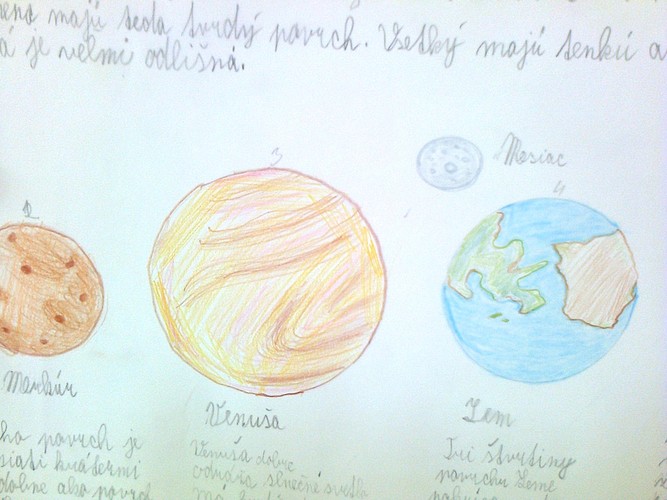 majú teda tvrdý povrch. Všetky majú tenkú a
á je veľmi odlišná.
Mesiac
2
3
4
Merkúr
Venuša
Zem
povrch je
siatí krátermi
dobne ako povrch
Venuša dobre
odráža slnečné svetlo
Tri štvrtiny
povrchu Zeme